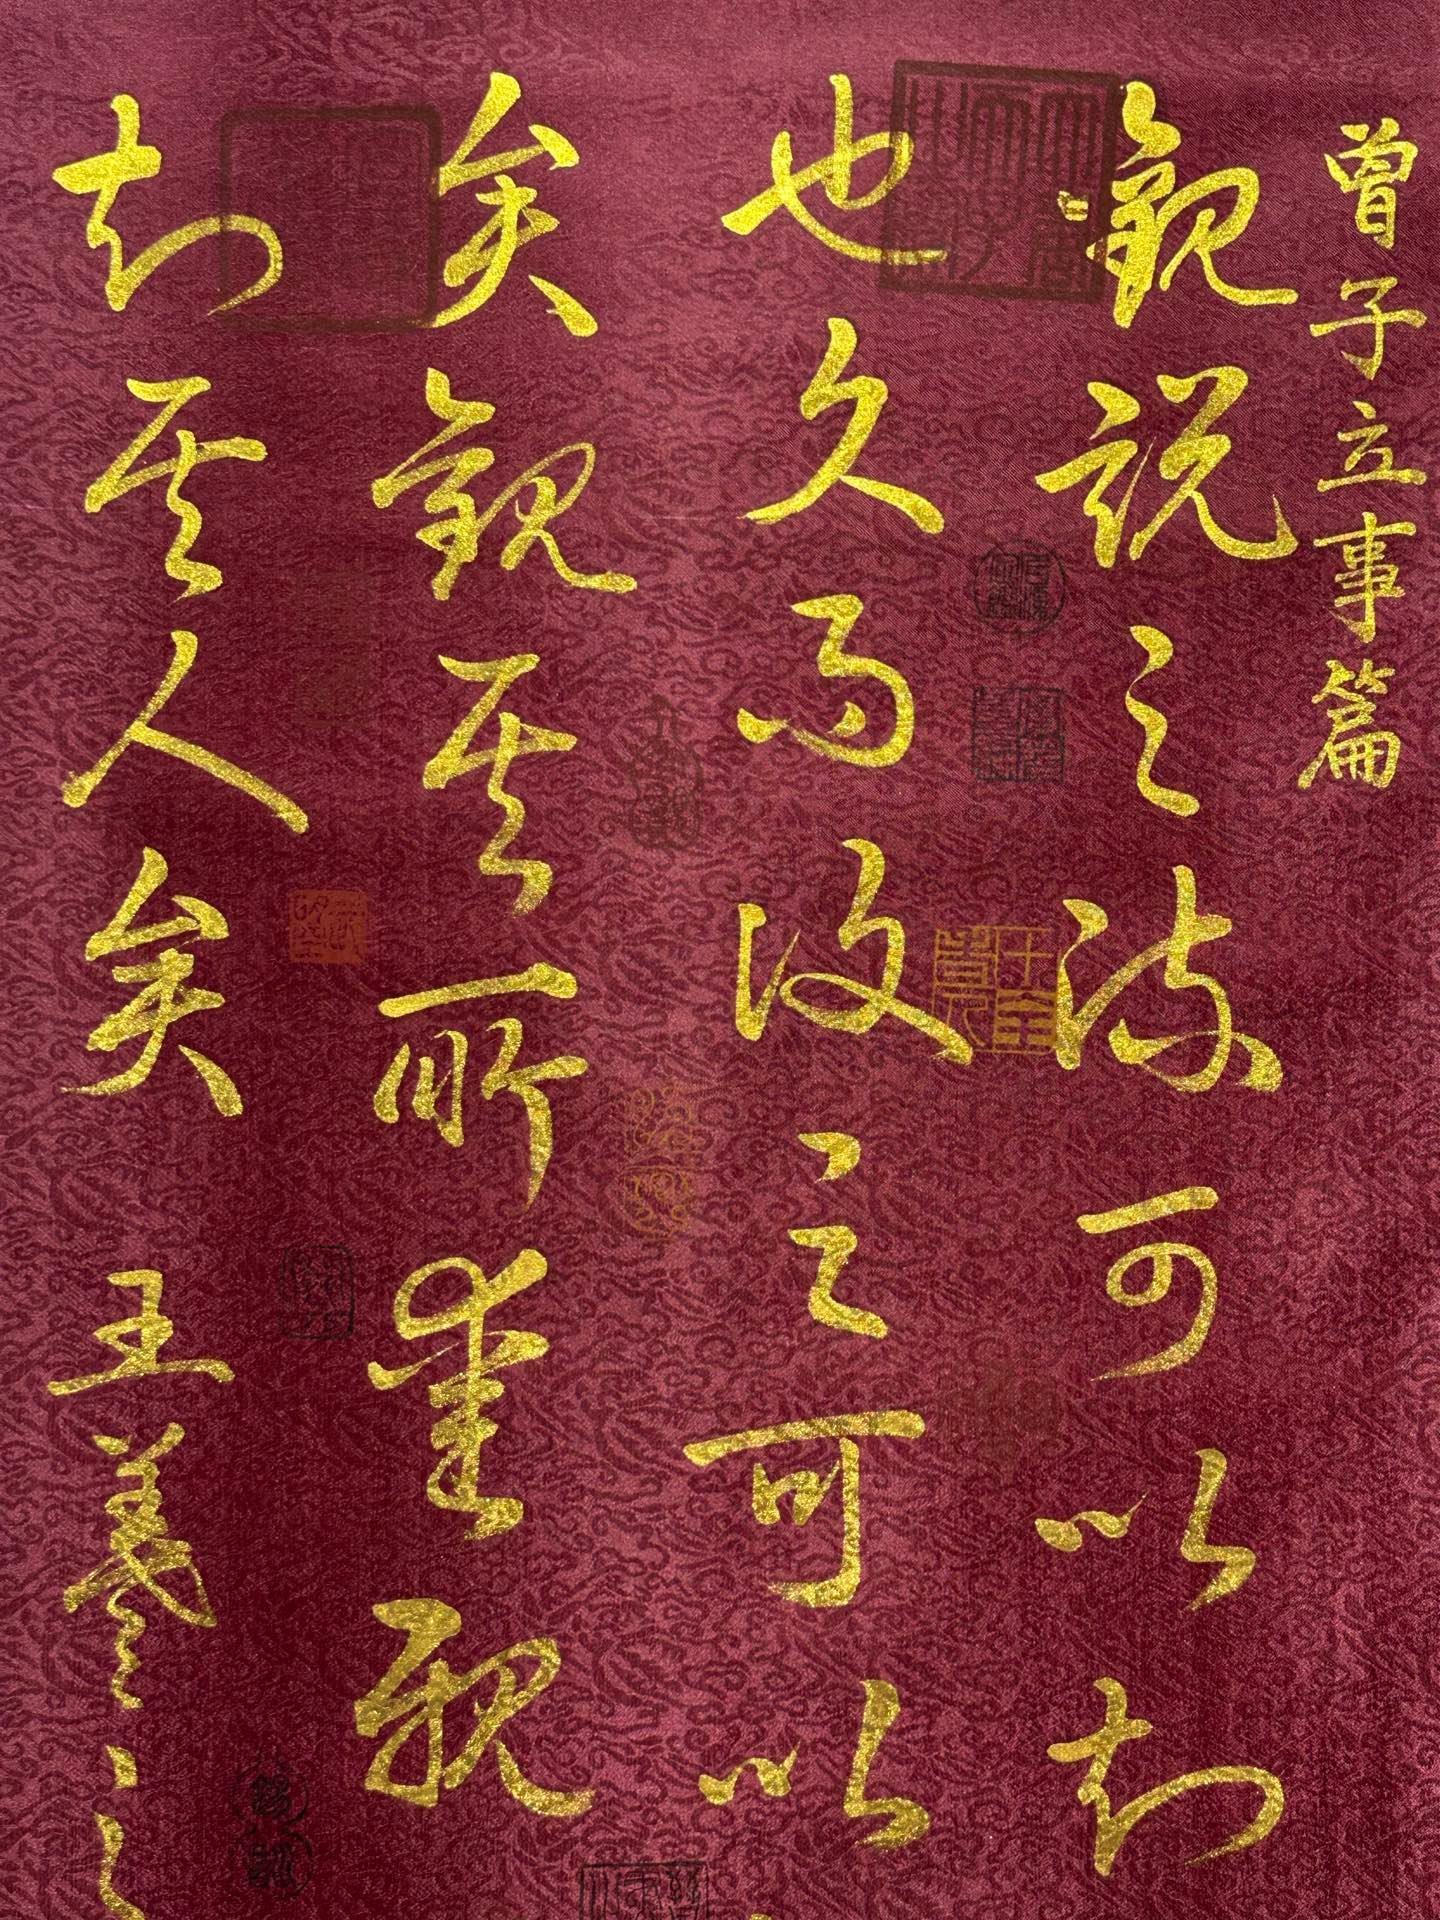 曾子立事篇
觀說之流可以知
也久而復之可以
矣觀其所愛親
知其人矣 王羲之